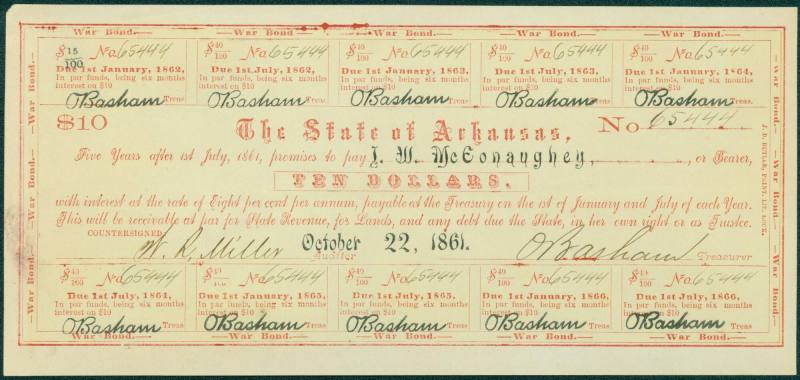 War Bond. War Bond. War Bond. War Bond. War Bond.
$15/100 No 65444
Due 1st January, 1862,
In par funds, being six months
interest on $10
O Basham Treas.
$40/100 No. 65444
Due 1st July, 1862,
In par funds, being six months
interest on $10
O Basham Treas.
$40/100 No. 65444
Due 1st January, 1863,
In par funds, being six months
interest on $10
O Basham Treas.
$40/100 No. 65444
Due 1st July, 1863,
In par funds, being six months
interest on $10
O Basham Treas.
$40/100 No. 65444
Due 1st January, 1864,
In par funds, being six months
interest on $10
O Basham Treas.
$10 The State of Arkansas, No 65444
Five Years after 1st July, 1861, promises to pay J. W. McConaughey, or Bearer,
TEN DOLLARS,
with interest at the rate of Eight per cent per annum, payable at the Treasury on the 1st of January and July of each Year.
This will be receivable at par for State Revenue, for Lands, and any debt due the State, in her own right or as Trustee.
COUNTERSIGNED
W. R. Miller Auditor October 22, 1861. O Basham Treasurer
$40/100 No. 65444
Due 1st July, 1864,
In par funds, being six months
interest on $10
O Basham Treas
$40/100 No. 65444
Due 1st January, 1865,
In par funds, being six months
interest on $10
O Basham Treas
$40/100 No. 65444
Due 1st July, 1865,
In par funds, being six months
interest on $10
O Basham Treas
$40/100 No. 65444
Due 1st January, 1866,
In par funds, being six months
interest on $10
O Basham Treas
$40/100 No. 65444
Due 1st July, 1866,
In par funds, being six months
interest on $10
O Basham Treas
War Bond. War Bond. War Bond. War Bond. War Bond.
War Bond. War Bond. War Bond.
War Bond. War Bond. War Bond.
J. D. BUTLER, PRINT, LIT. ROCK.